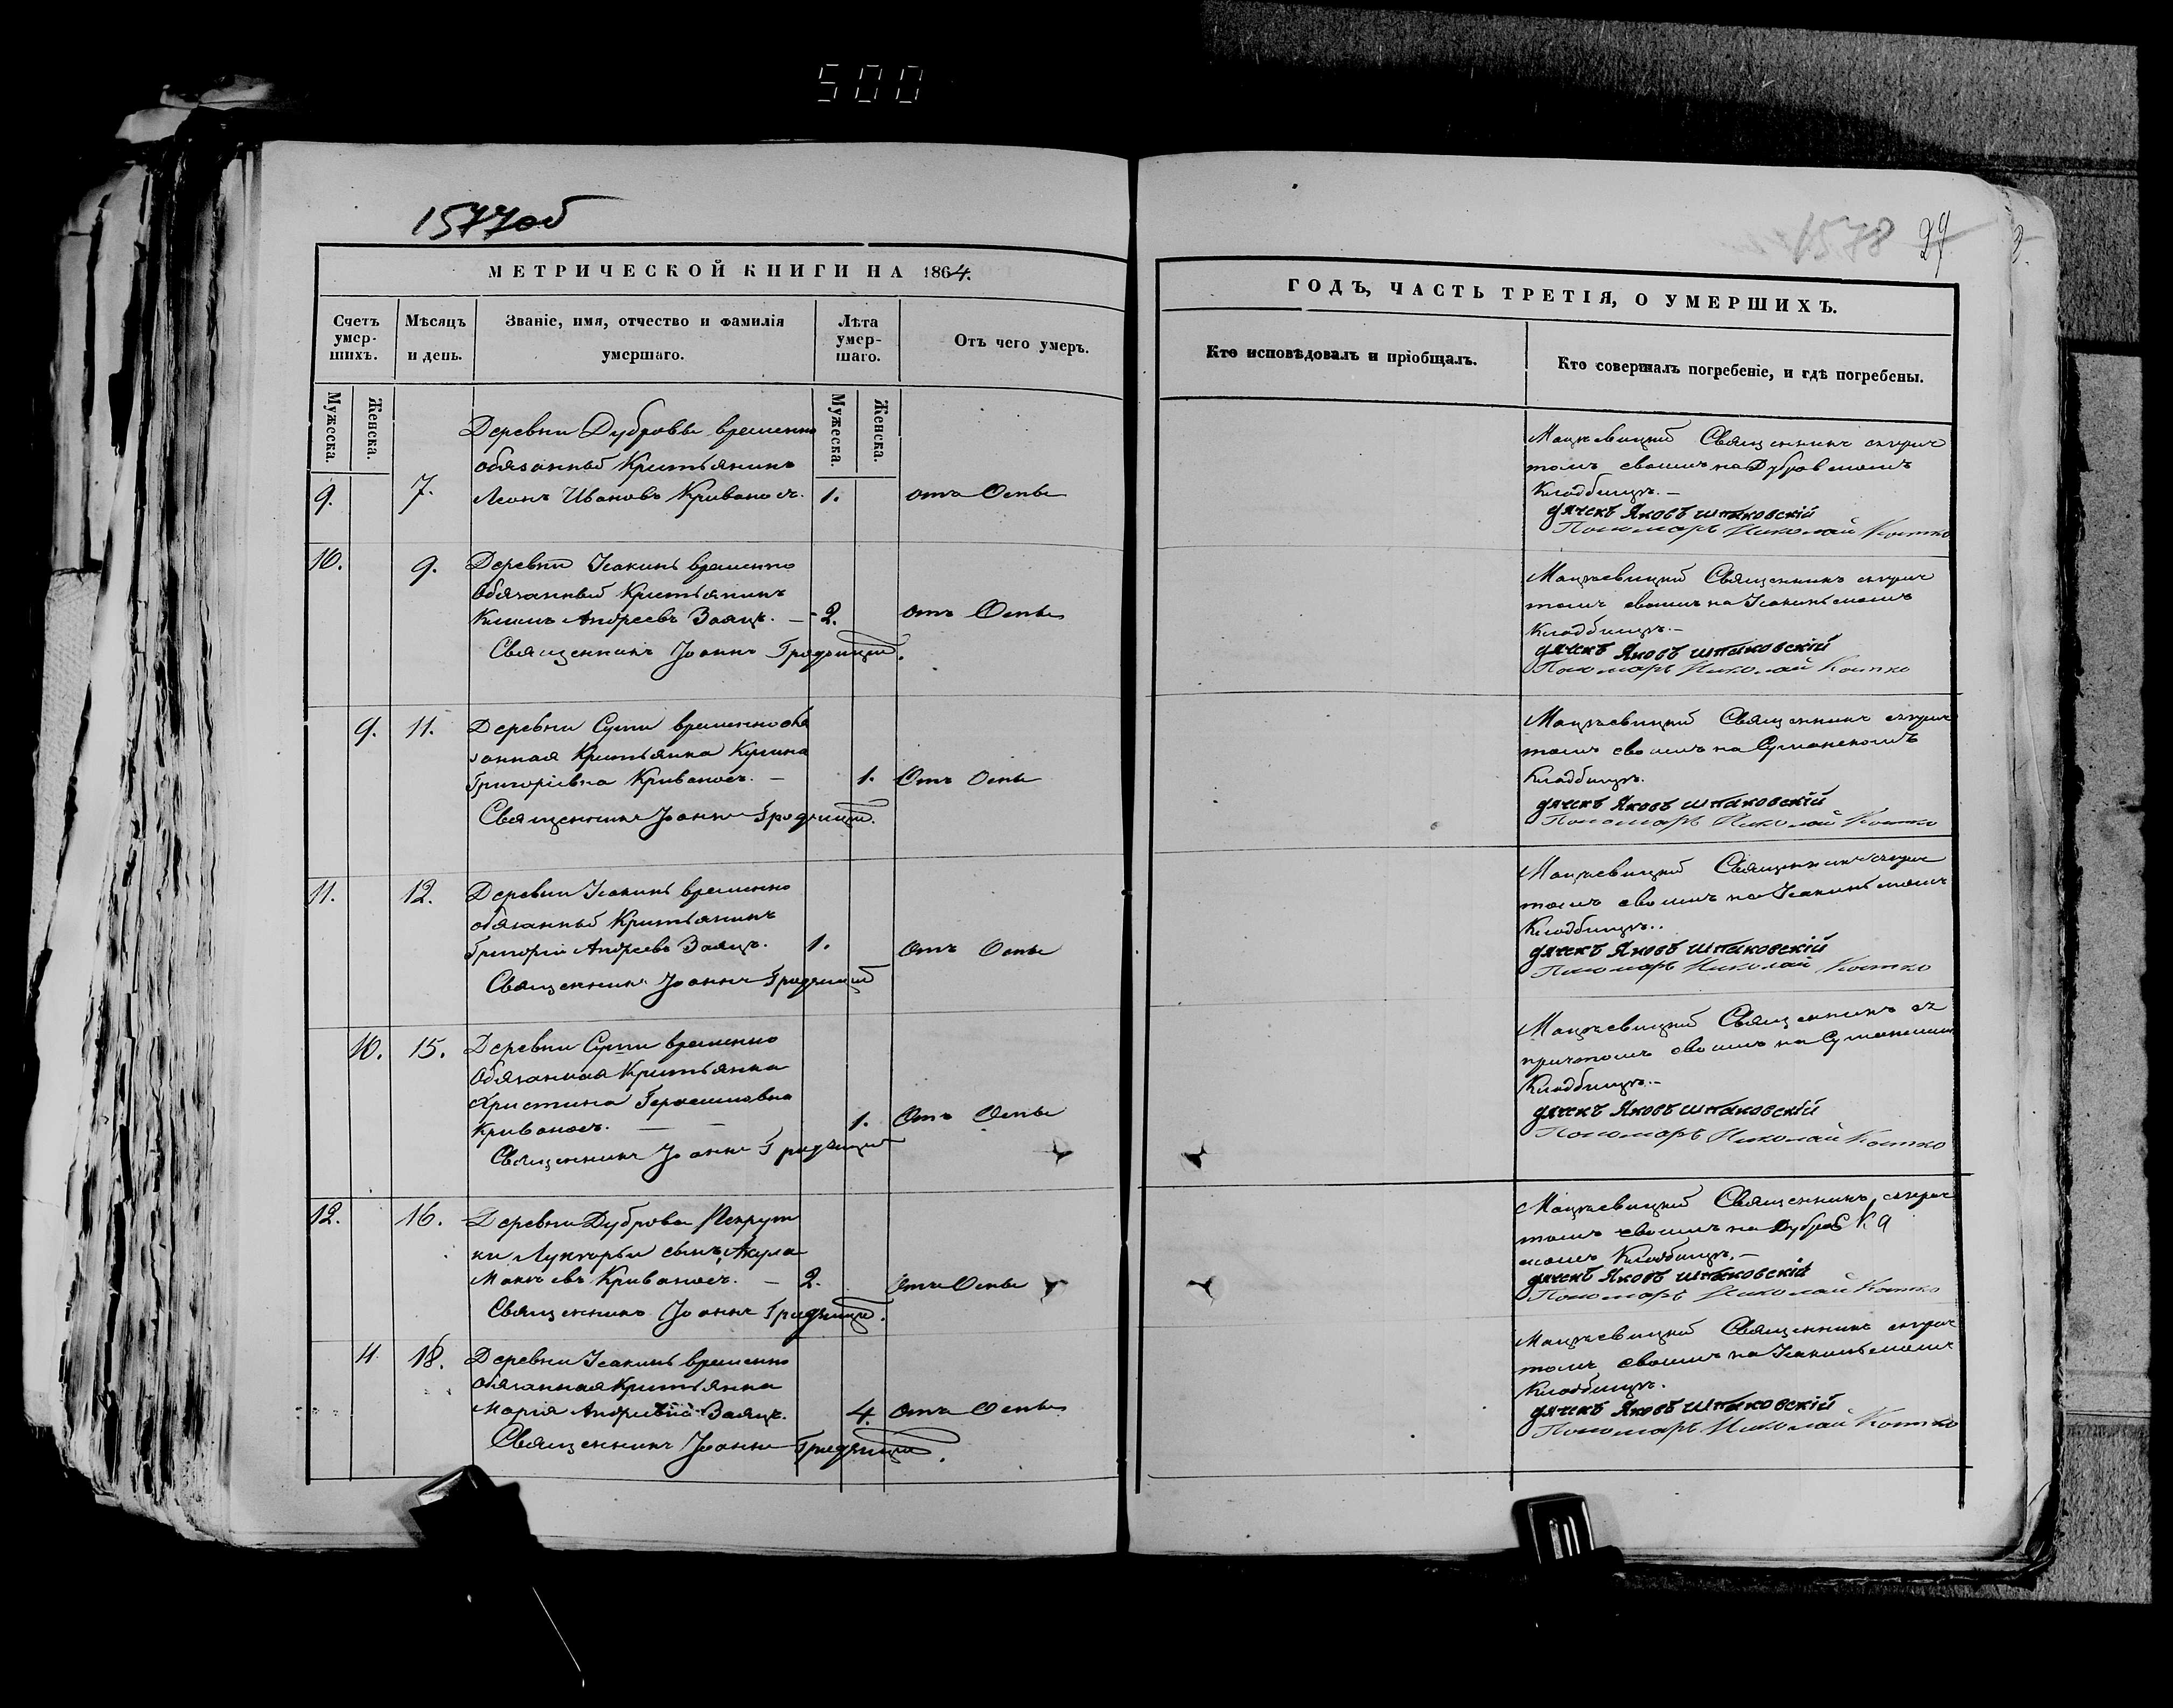 500
1577об
1578 29
3.
МЕТРИЧЕСКОЙ КНИГИ НА 1864.
Счетъ умер-шихъ.
Мѣсяцъ и день.
Званіе, имя, отчество и фамилія умершаго.
Лѣта умер-шаго.
Отъ чего умеръ.
Мужеска.
Женска.
Мужеска.
Женска.
Деревни Дубровы временно
обязанный Крестьянинъ
9. 7. Леонъ Ивановъ Кривоносъ. 1. отъ Оспы
10. 9. Деревни Исакинъ временно
обязанный Крестьянинъ
Климъ Андреевъ Заяцъ. — 2. отъ Оспы
Священникъ Іоаннъ Гродзицкій.
9. 11. Деревни Сушы временнообя
занная Крестьянка
Григоріевна Кривоносъ. — 1. Отъ Оспы
Священникъ Іоаннъ Гродзицкій.
11. 12. Деревни Исакинъ временно
обязанный Крестьянинъ
Григорій Андреевъ Заяцъ. 1. Отъ Оспы
Священникъ Іоаннъ Гродзицкій
10. 15. Деревни Сушы временно
Обязанная Крестьянка
Христина Герасимовна
Кривоносъ. — — 1. Отъ Оспы
Священникъ Іоаннъ Гродзицкій
12. 16. Деревни Дубровы Рекрут
ки сынъ Акула
Кривоносъ. — 2. Отъ Оспы
Священникъ Іоаннъ Гродзицкій.
11 18. Деревни Исакинъ временно
обязанная Крестьянка
Марія Андреевна Заяцъ. 4. Отъ Оспы
Священникъ Іоаннъ Гродзицкій.
ГОДЪ, ЧАСТЬ ТРЕТІЯ, О УМЕРШИХЪ.
Кто исповѣдовалъ и пріобщалъ.
Кто совершалъ погребеніе, и гдѣ погребены.
Мацкевицкій Священникъ съ прич
томъ своимъ на Дубровскомъ
Кладбищѣ.—
дячекъ Яковъ шпаковскій
Пономарь Николай Костко
Мацкевицкій Священникъ съ прич
томъ своимъ на Исакинскомъ
Кладбищѣ.—
дячекъ Яковъ шпаковскій
Пономарь Николай Костко
Мацкевицкій Священникъ съ прич
томъ своимъ на Сушанскомъ
Кладбищѣ.
дячекъ Яковъ шпаковскій
Пономарь Николай Костко
Мацкевицкій Священникъ съ прич
томъ своимъ на Исакинскомъ
Кладбищѣ..
дячекъ Яковъ шпаковскій
Пономарь Николай Костко
Мацкевицкій Священникъ съ
причтомъ своимъ на Сушанскомъ
Кладбищѣ.—
дячекъ Яковъ шпаковскій
Пономарь Николай Костко
Мацкевицкій Священникъ съ прич
томъ своимъ на Дубров
скомъ Кладбищѣ.—
дячекъ Яковъ шпаковскій
Пономарь Николай Костко
Мацкевицкій Священникъ съ прич
томъ своимъ на Исакинскомъ
Кладбищѣ.
дячекъ Яковъ шпаковскій
Пономарь Николай Костко